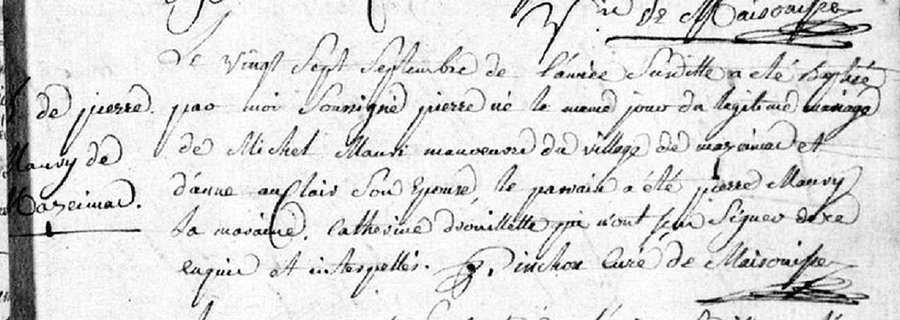 V.re de Maisonisse
Le vingt Sept Septembre de l'année Susditte a été baptisé
de pierre par moi Soussigné pierre né le meme jour du legitime mariage
Mauvy de de Michel Mauvi manoeuvre du village de mazeimat et
Mazeimat. d'anne auClair Son Epouse le parrain a été pierre Mauvy
la maraine. Catherine drouillette qui n'ont seu Signer de ce
enquis et interpellés. Pinchon Curé de Maisonisse